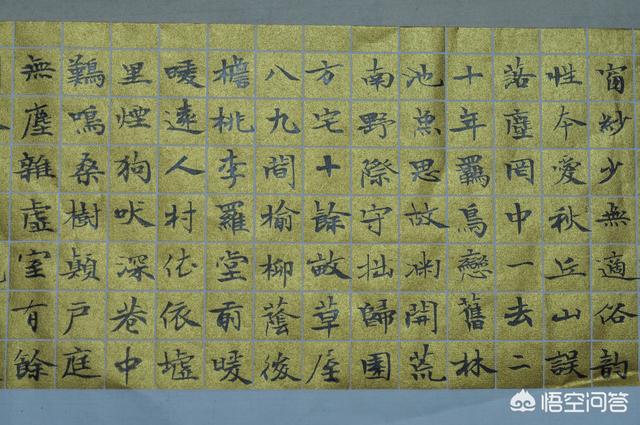 窗紗少無適俗韵
性本愛秋丘山誤
落塵罔中一去二
十年羈鳥戀舊林
池魚思故渕開荒
南野際守拙歸園
方宅十餘畝草屋
八九間榆柳蔭後
檐桃李羅堂前暖
暖遠人村依依墟
里煙狗吠深巷中
鷄鳴桑樹顛戶庭
無塵雜虛室有餘
悟空问答